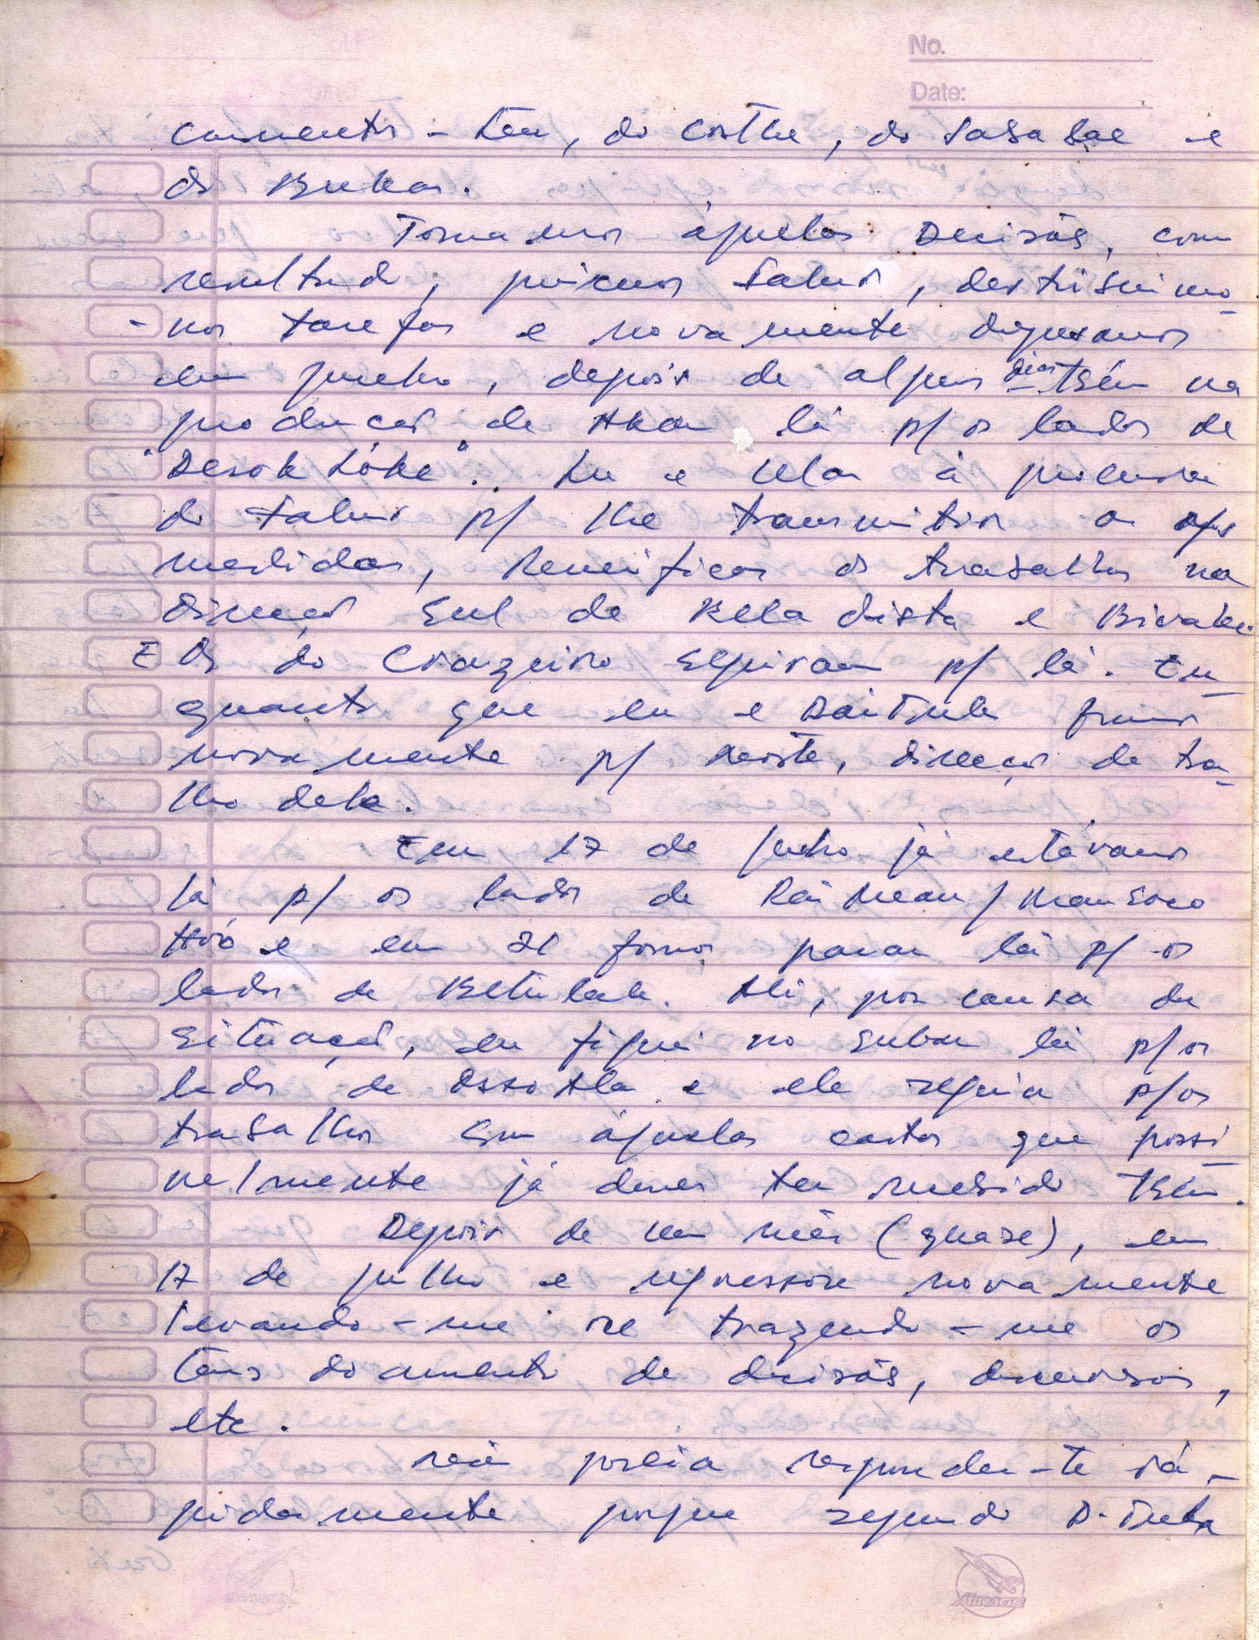 No.
Date:
documento - teu, do Costha, do Sasa Sae e
do Bukar.
Tomamos àquelas Decisões, como
resultado, Saburo, distribuimo
-nos tarefas e novamente dispersamos
em Junho, depois de alguns dias Tbém na
produção de Akan lá p/ os lados de
"Desok Lóke". Eu e Ular à procura
do Saburo p/ lhe transmitir as
medidas, reunificar os trabalhos na
direcção Sul de Bela Vista e Bivake
E Os do Cruzeiro seguiram p/ lá. En-
quanto que eu e DaiTula fomos
novamente p/ Oeste, direcção de tra-
lho dele.
Em 17 de Junho já estávamos
lá p/ os lados de Rai Mean/ManSoco
Hóó e em 21 fomos parar lá p/ os
lados de Betulale. Ali, por causa da
situação, eu fiquei no Suban lá p/ os
lados de Ossoala e ele seguia p/ os
trabalhos com àquelas cartas que possi-
velmente já deves ter recebido Tbém.
Depois de um mês (quase), em
17 de Julho e regressou novamente
levando-me ou trazendo-me os
teus documentos de decisões, discursos,
etc.
Não podia responder-te rá-
pidamente porque segundo D. Tula